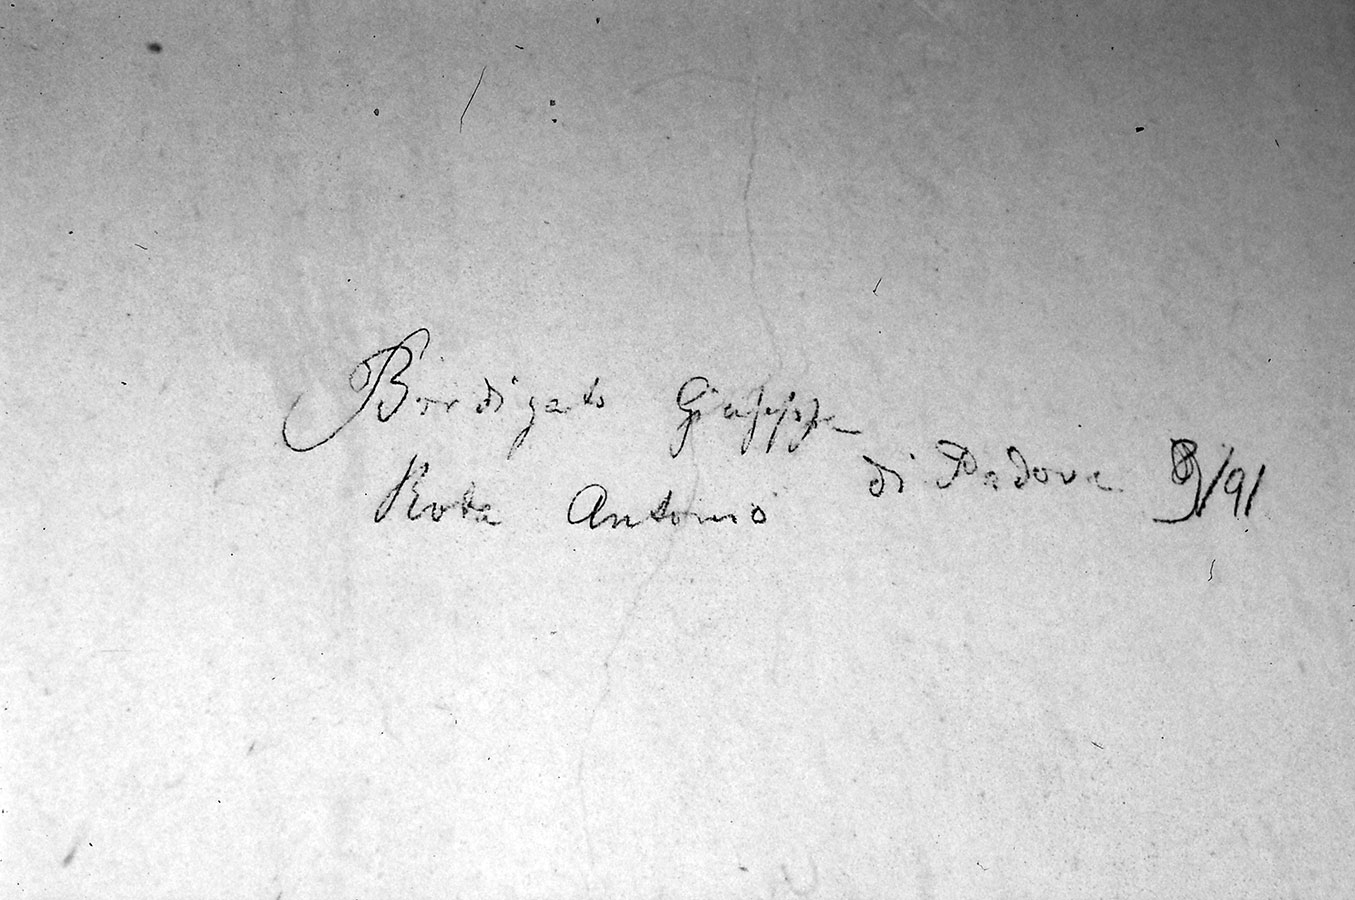 Bordigato Giuseppe
Rota Antonio
di Padova 9/91